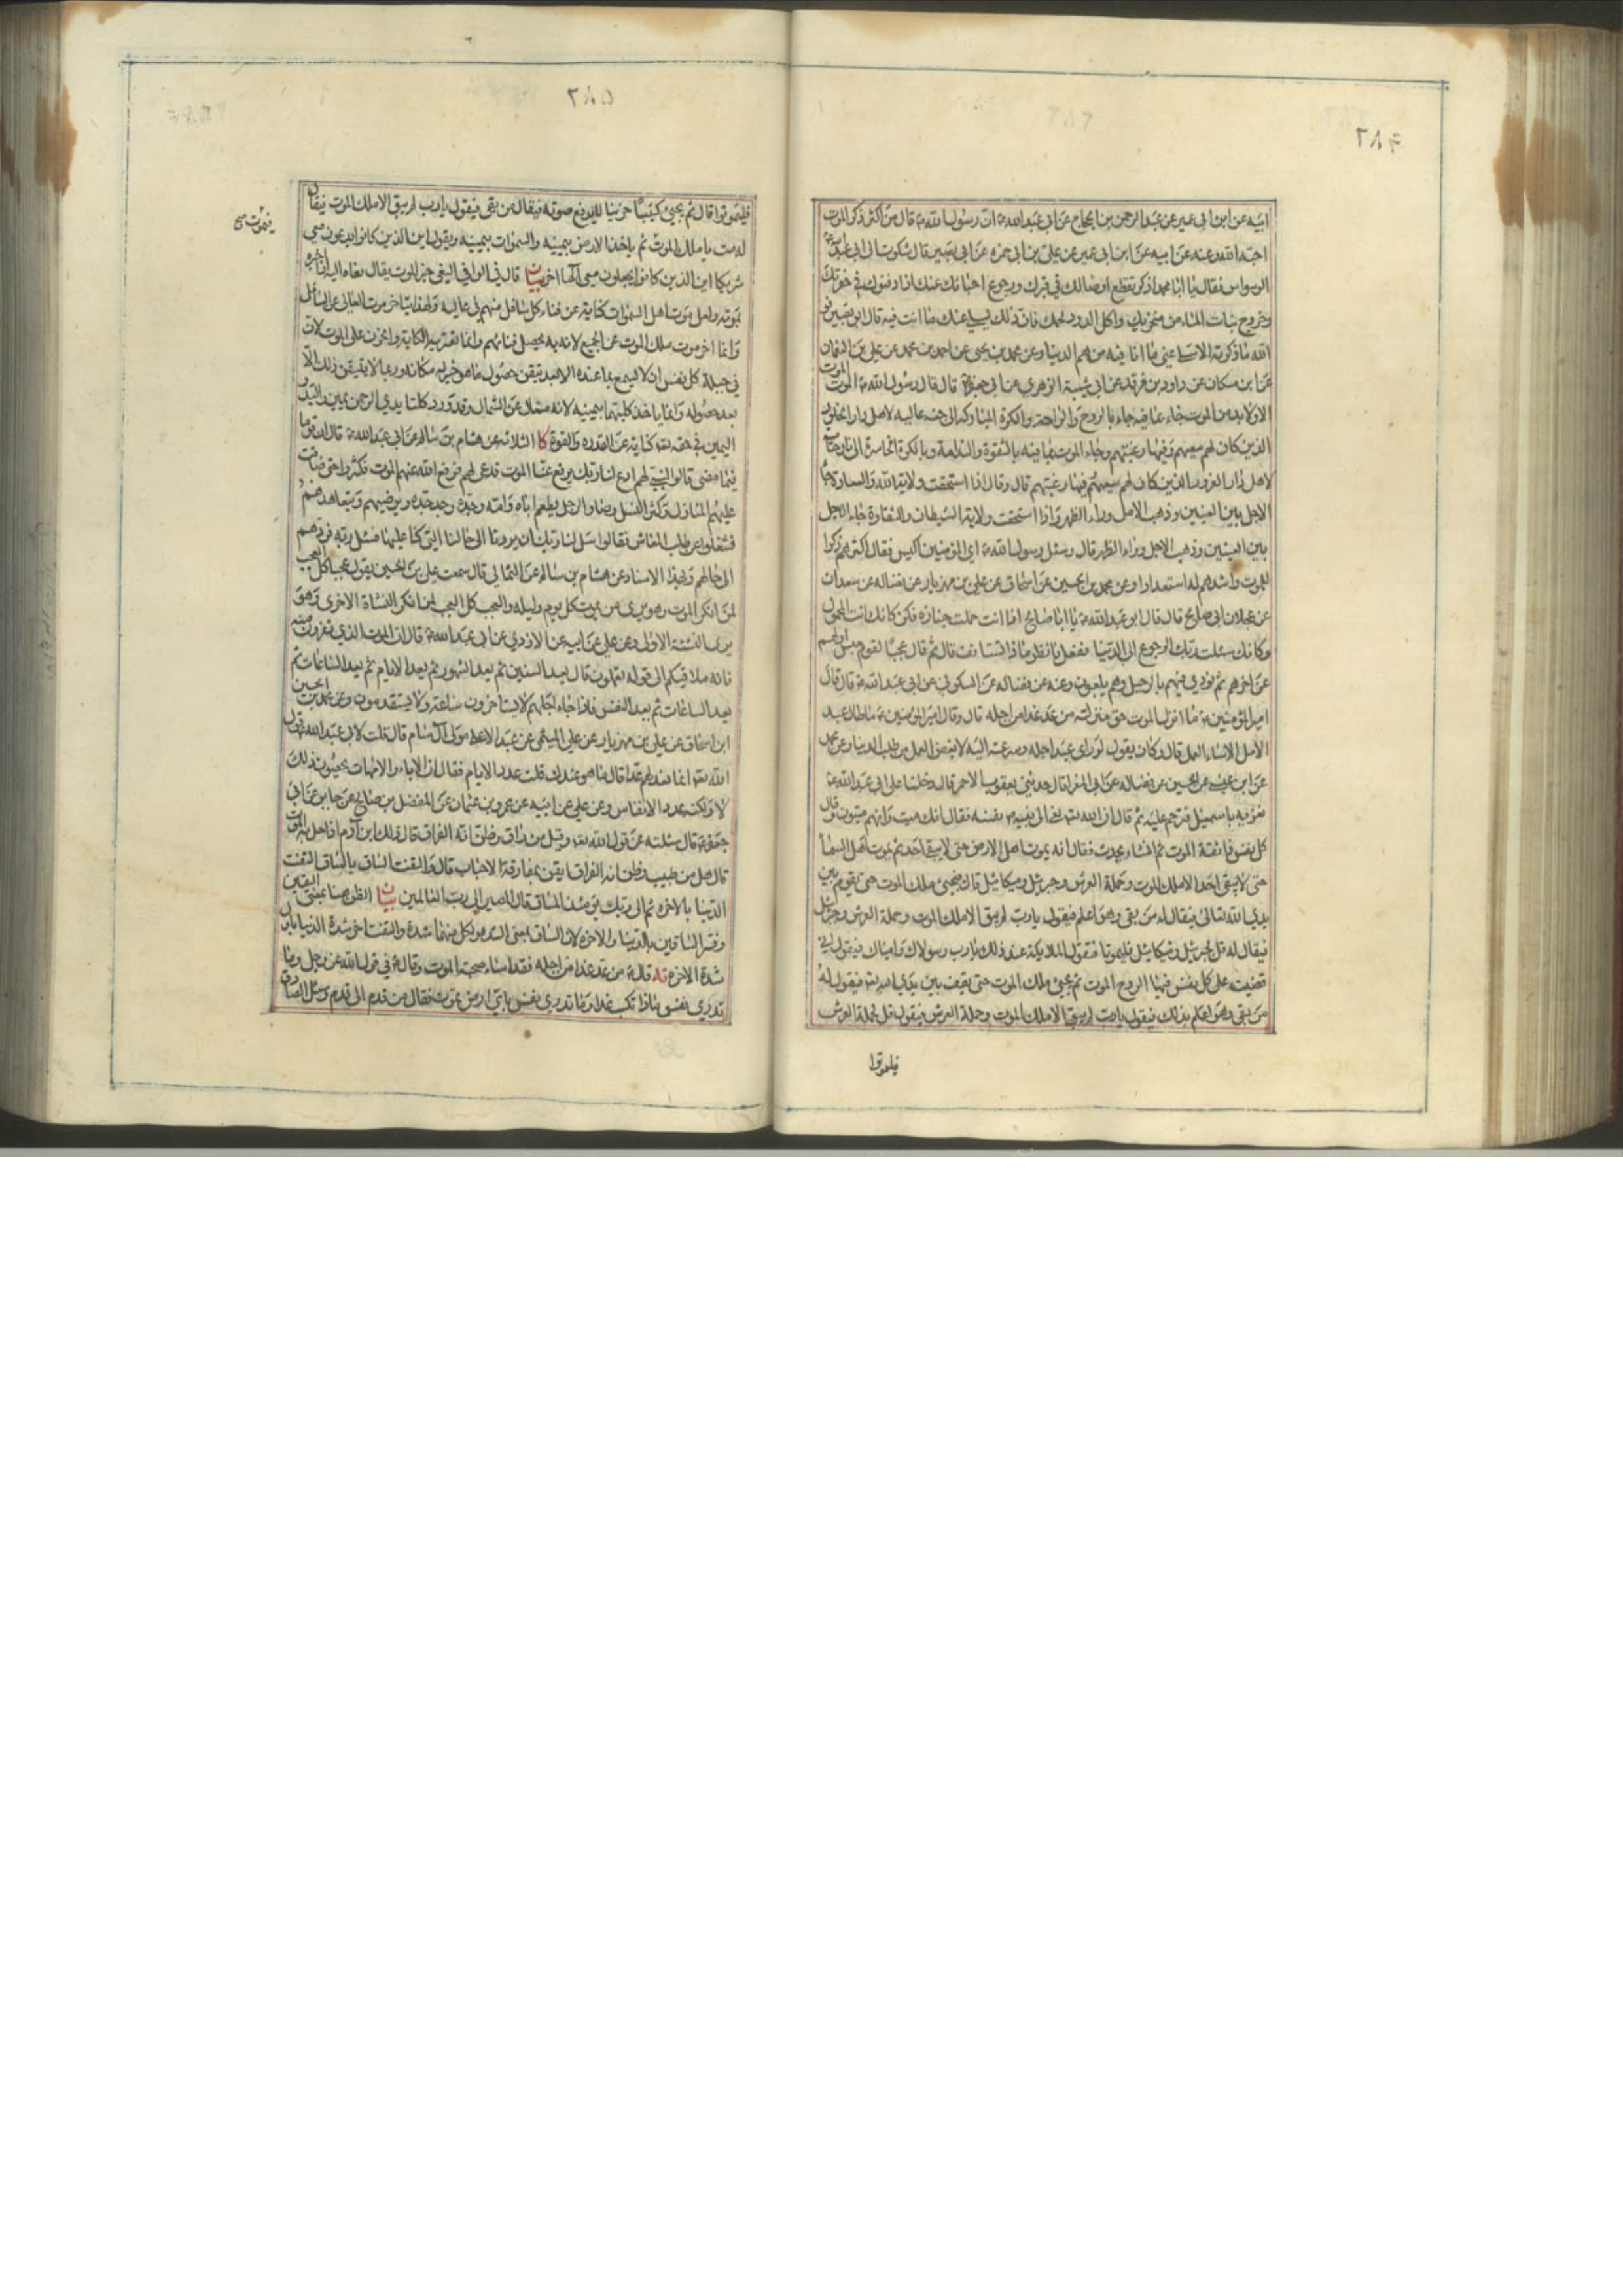 ٢٨٤
ابيه عن ابن ابى عمير عن عبد الرحمن بن الحجاج عن ابى عبد الله ع ان رسول الله ص قال من اكثر ذكر الموت
احبه الله وعنه عن ابيه عن ابن ابى عمير عن على بن ابى حمزه عن ابى بصير قال شكوت الى ابى عبد الله ع
الوسواس فقال يا ابا محمد اذكر تقطع اوصالك فى قبرك ورجوع احبائك عنك اذا دفنوك فى حفرتك
وخروج بنات الماء من منخريك واكل الدود لحمك فان ذلك يسلى عنك ما انت فيه قال ابو بصير فو
الله ما ذكرته الا سلى عنى ما انا فيه من هم الدنيا وعن محمد بن يحيى عن احمد بن محمد عن على بن النعمان
عن ابن مسكان عن داود بن فرقد عن ابى شيبة الزهرى عن ابى جعفر ع قال قال رسول الله ص الموت الموت
الا ولا بد من الموت جاء الموت بما فيه جاء بالروح والراحة والكرة المباركه الى جنه عاليه لاهل دار الخلود
الذين كان لهم سعيهم وفيها رغبتهم وجاء الموت بما فيه بالشقوة والندامة وبالكرة الخاسرة الى نار حامية
لاهل دار الغرور الذين كان لهم سعيهم وفيها رغبتهم قال وقال اذا استحقت ولاية الله والسعادة جاء
الاجل بين العينين وذهب الامل وراء الظهر واذا استحقت ولاية الشيطان والشقاوة جاء الامل
بين العينين وذهب الاجل وراء الظهر قال وسئل رسول الله ص اى المؤمنين اكيس فقال اكثرهم ذكرا
للموت واشدهم له استعدادا وعن محمد بن الحسين عن اسحاق عن على بن مهزيار عن فضاله عن سعدان
عن عجلان ابى صالح قال قال ابو عبد الله ع يا ابا صالح اذا انت حملت جنازه فكن كانك انت المحمول
وكانك سئلت ربك الرجوع الى الدنيا ففعل فانظر ماذا تستانف قال ثم قال عجبا لقوم حبس اولهم
عن اخرهم ثم نودى فيهم بالرحيل وهم يلعبون وعنه عن فضاله عن السكونى عن ابى عبد الله ع قال قال
امير المؤمنين ع ما انزل الموت حق منزلته من عد غدا من اجله قال وقال امير المؤمنين ع ما اطال عبد
الامل الا اساء العمل قال وكان يقول لو راى عبد اجله وسرعته اليه لابغض العمل من طلب الدنيا وعن محمد
عن ابن عيسى عن الحسين عن فضاله عن ابى المغرا قال حدثنى يعقوب الاحمر قال دخلنا على ابى عبد الله ع
نعزيه باسمعيل فترحم عليه ثم قال ان الله نعى الى نبيه ص نفسه فقال انك ميت وانهم ميتون وقال
كل نفس ذائقة الموت ثم انشاء يحدث فقال انه يموت اهل الارض حتى لا يبقى احد ثم يموت اهل السماء
حتى لا يبقى احد الا ملك الموت وحملة العرش وجبرئيل وميكائيل قال فيجىء ملك الموت حتى يقوم بين
يدى الله تعالى فيقال له من بقى وهو اعلم فيقول يا رب لم يبق الا ملك الموت وحملة العرش وجبرئيل
فيقال له قل لجبرئيل وميكائيل فليموتا فتقول الملائكة عند ذلك يا رب رسولاك واميناك فيقول انى
قضيت على كل نفس فيها الروح الموت ثم يجىء ملك الموت حتى يقف بين يدى الله فيقول له
من بقى وهو اعلم بذلك فيقول يا رب لم يبق الا ملك الموت وحملة العرش فيقول قل لحملة العرش
فليموتوا
٢٨٥
فليموتوا قال ثم يجىء كئيبا حزينا لا يرفع صوته فيقال من بقى فيقول يا رب لم يبق الا ملك الموت فيقال
له مت يا ملك الموت ثم ياخذ الارض بيمينه والسموات بيمينه ويقول اين الذين كانوا يدعون معى
شريكا اين الذين كانوا يجعلون معى الها اخر بيان قال فى الوافى النعى خبر الموت يقال نعاه اليه اذا اخبره
بموته ولعل موت اهل السموات كناية عن فناء كل سافل منهم فى عاليه ولهذا يتاخر موت العالى عن السافل
وانما اخر موت ملك الموت عن الجميع لانه به يحصل فنائهم وانما تعتريه الكابة والحزن على الموت لان
فى جبلة كل نفس ان لا يسمح بما عنده الا بعد تيقن حصول ما هو خير له مكانه وربما لا يتيقن ذلك الا
بعد حصوله وانما ياخذ كلتيهما بيمينه لانه متعال عن الشمال وقد ورد كلتا يدى الرحمن يمين واليد و
اليمين فى حقه كناية عن القدره والقوة كا الثلاثه عن هشام بن سالم عن ابى عبد الله ع قال ان قوما
فيما مضى قالوا لنبى لهم ادع لنا ربك يرفع عنا الموت فدعى لهم فرفع الله عنهم الموت فكثروا حتى ضاقت
عليهم المنازل وكثر النسل وصار الرجل يطعم اباه وامه وجده وجد جده ويرضيهم ويتعاهدهم
فشغلوا عن طلب المعاش فقالوا سل لنا ربك ان يردنا الى حالنا التى كنا عليها فسئل ربه فردهم
الى حالهم وبهذا الاسناد عن هشام بن سالم عن الثمالى قال سمعت على بن الحسين يقول عجبا كل العجب
لمن انكر الموت وهو يرى من يموت كل يوم وليله والعجب كل العجب لمن انكر النشاة الاخرى وهو
يرى النشئة الاولى وعن على عن ابيه عن الازدى عن ابى عبد الله ع قال ان الموت الذى تفرون منه
فانه ملاقيكم الى قوله تعملون قال تعد السنين ثم تعد الشهور ثم تعد الايام ثم تعد الساعات ثم
تعد النفس فاذا جاء اجلهم لا يستاخرون ساعة ولا يستقدمون وعن محمد بن الحسين
ابن اسحاق عن على بن مهزيار عن على الميثمى عن عبد الاعلى مولى آل سام قال قلت لابى عبد الله ع قول
الله انما نعد لهم عدا قال ما هو عندك قلت عدد الايام فقال ان الاباء والامهات يحصون ذلك
لا ولكنه عدد الانفاس وعن على عن ابيه عن عمرو بن عثمان عن المفضل بن صالح عن جابر عن ابى
جعفر ع قال سئلته عن قول الله وقيل من راق وظن انه الفراق قال فذلك ابن آدم اذا حل به الموت
قال هل من طبيب وظن انه الفراق ايقن بمفارقة الاحباب قال والتفت الساق بالساق التفت
الدنيا بالاخره ثم الى ربك يومئذ المساق قال المصير الى رب العالمين بيان الظن هنا بمعنى اليقين
وفسر الساقين بالدنيا والاخره لان الساق بمعنى الشده ولكل منهما شدة والتفت اخر شدة الدنيا باول
شدة الاخره يه قال ع من عد غدا من اجله فقد اساء صحبة الموت وقال ع فى قول الله عز وجل وما
تدرى نفس ماذا تكسب غدا وما تدرى نفس باى ارض تموت فقال من قدم الى قدم وسئل الصادق